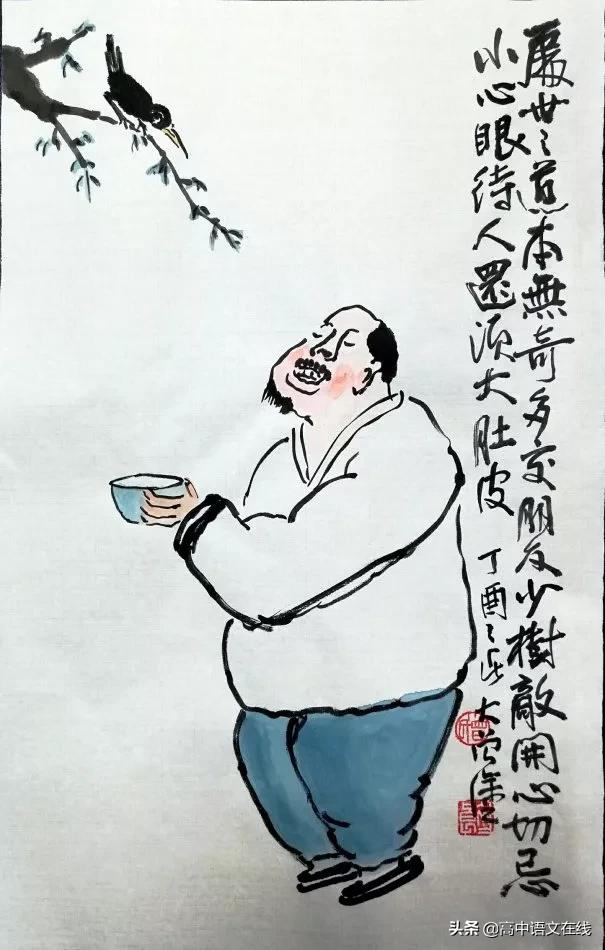 處世之道本無奇多交朋友少樹敵開心切忌
小心眼待人還須大肚皮
丁酉之
头条 @高中语文在线